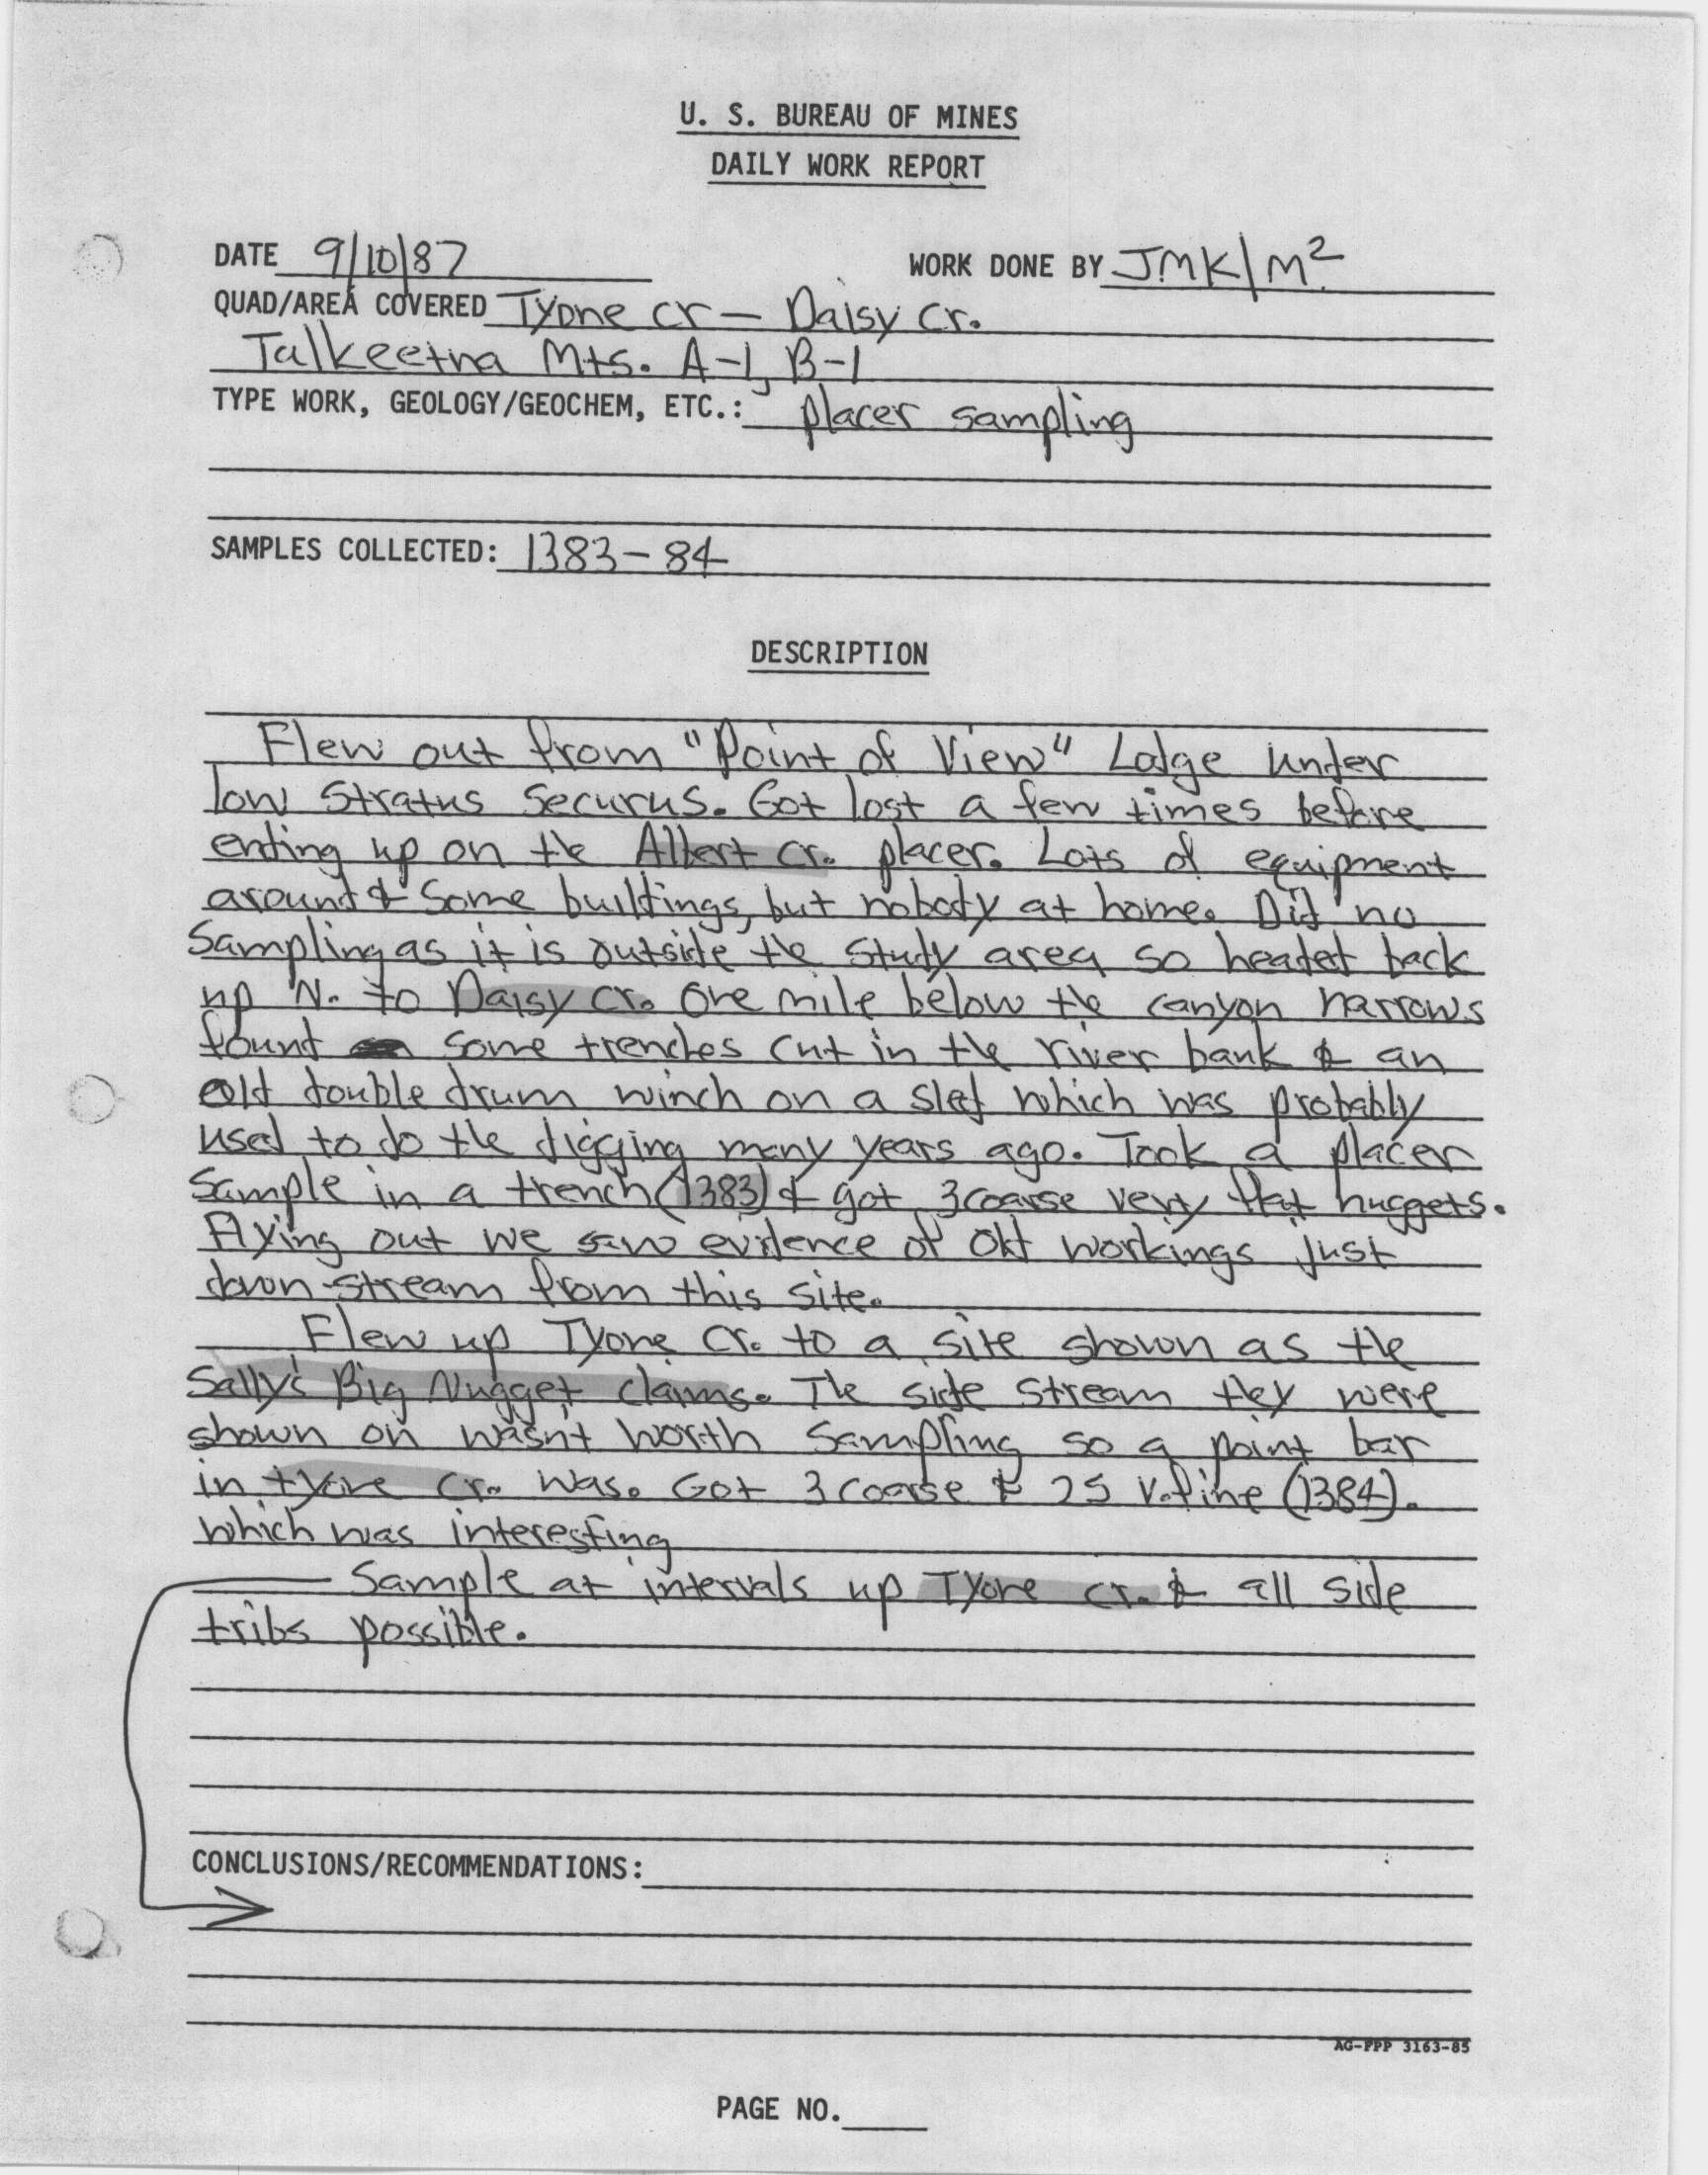 U. S. BUREAU OF MINES
DAILY WORK REPORT
DATE 9/10/87 WORK DONE BY JMK/M²
QUAD/AREA COVERED Tyone cr — Daisy Cr.
Talkeetna Mts. A-1, B-1
TYPE WORK, GEOLOGY/GEOCHEM, ETC.: placer sampling
SAMPLES COLLECTED: 1383-84
DESCRIPTION
Flew out from "Point of View" Lodge under
low stratus securus. Got lost a few times before
ending up on the Albert cr. placer. Lots of equipment
around & some buildings, but nobody at home. Did no
sampling as it is outside the study area so headed back
up N. to Daisy cr. One mile below the canyon narrows
found some trenches cut in the river bank & an
old double drum winch on a sled which was probably
used to do the digging many years ago. Took a placer
sample in a trench (1383) & got 3 coarse very flat nuggets.
Flying out we saw evidence of old workings just
down-stream from this site.
Flew up Tyone Cr. to a site shown as the
Sally's Big Nugget claims. The side stream they were
shown on wasn't worth sampling so a point bar
in tyone cr. was. Got 3 coarse & 25 v.fine (1384).
which was interesting
Sample at intervals up Tyone cr. & all side
tribs possible.
CONCLUSIONS/RECOMMENDATIONS:
AG-FPP 3163-85
PAGE NO.